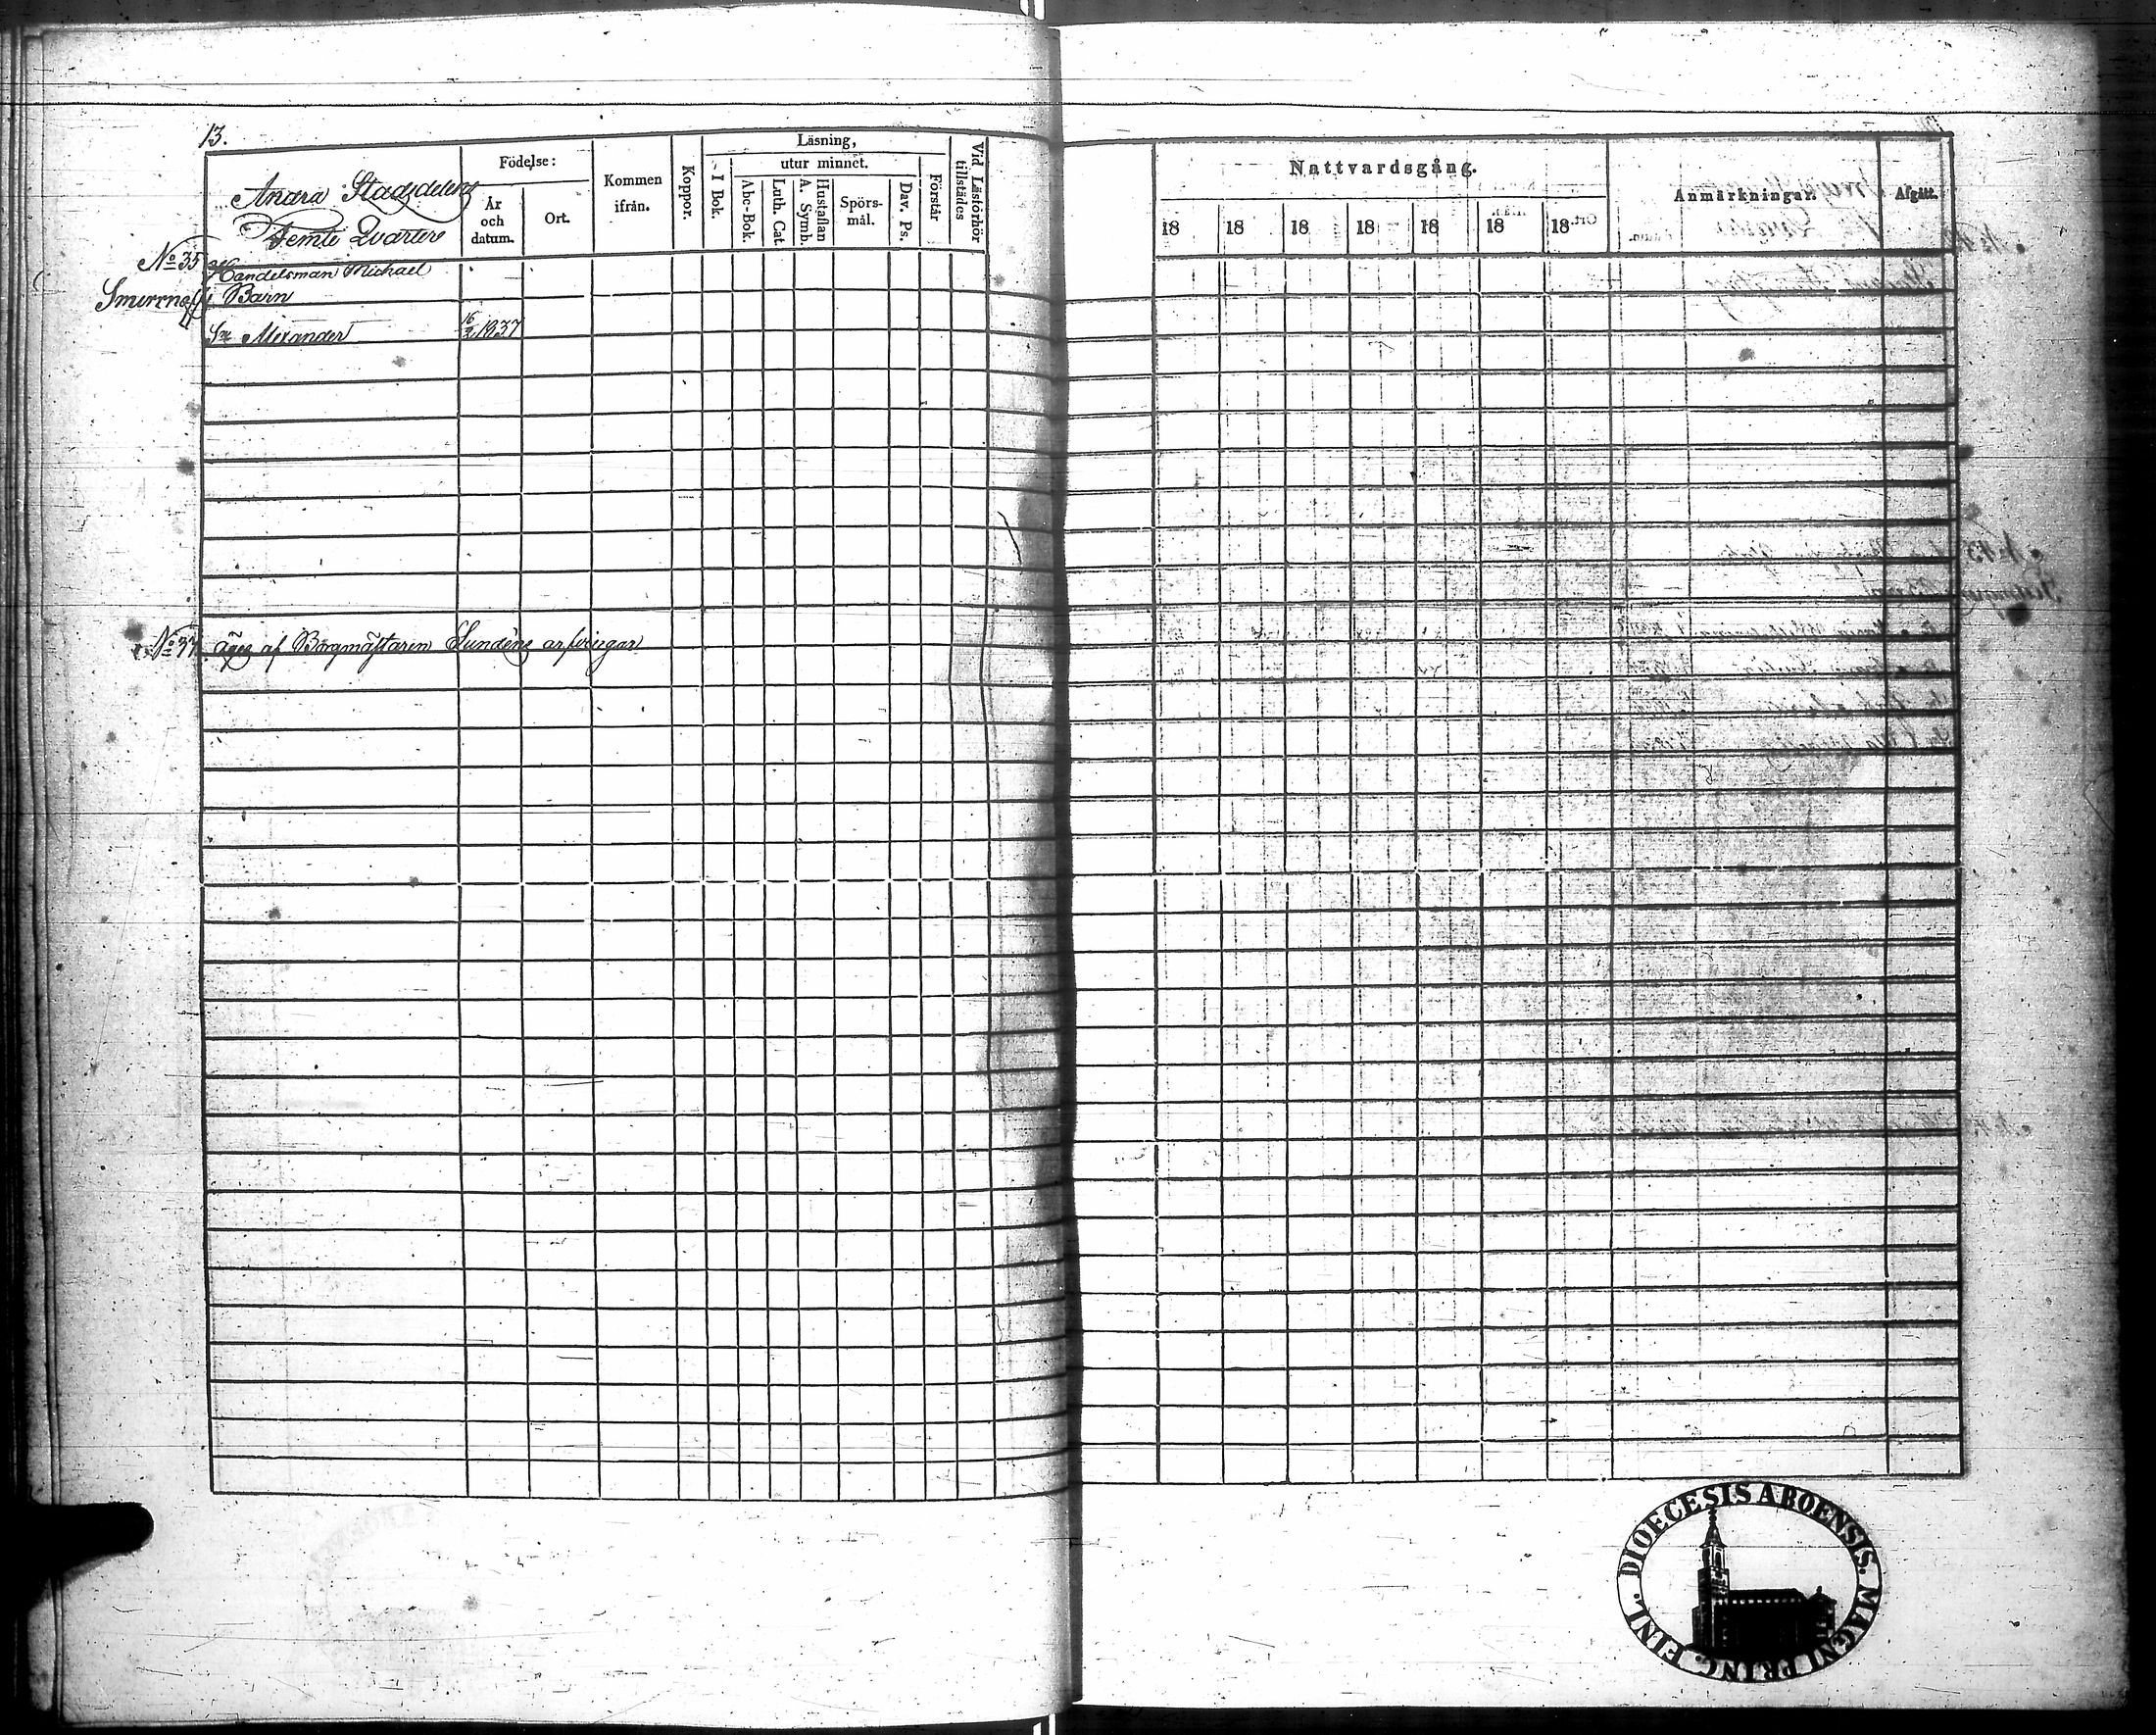 13.
Andra Stadsdelens
Femte Qvarter
Födelse:
År
och
datum.
Ort.
Kommen
ifrån.
Koppor.
Läsning,
I Bok.
utur minnet.
Abc-Bok.
Luth. Cat.
Hustaflan
A. Symb.
Spörs-
mål.
Dav. Ps.
Förstår
Vid Läsförhör
tillstädes
Nattvardsgång.
18 18 18 18 18 18 18
Anmärkningar.
Afgått.
No 35 Handelsman Michael
Smirnoff Barn
Sn Alexander 16/2 1837
No 37 äges af Borgmästaren Sundéns arfvingar
DIOECESIS ABOENSIS. MAGNI PRINC. FINL.